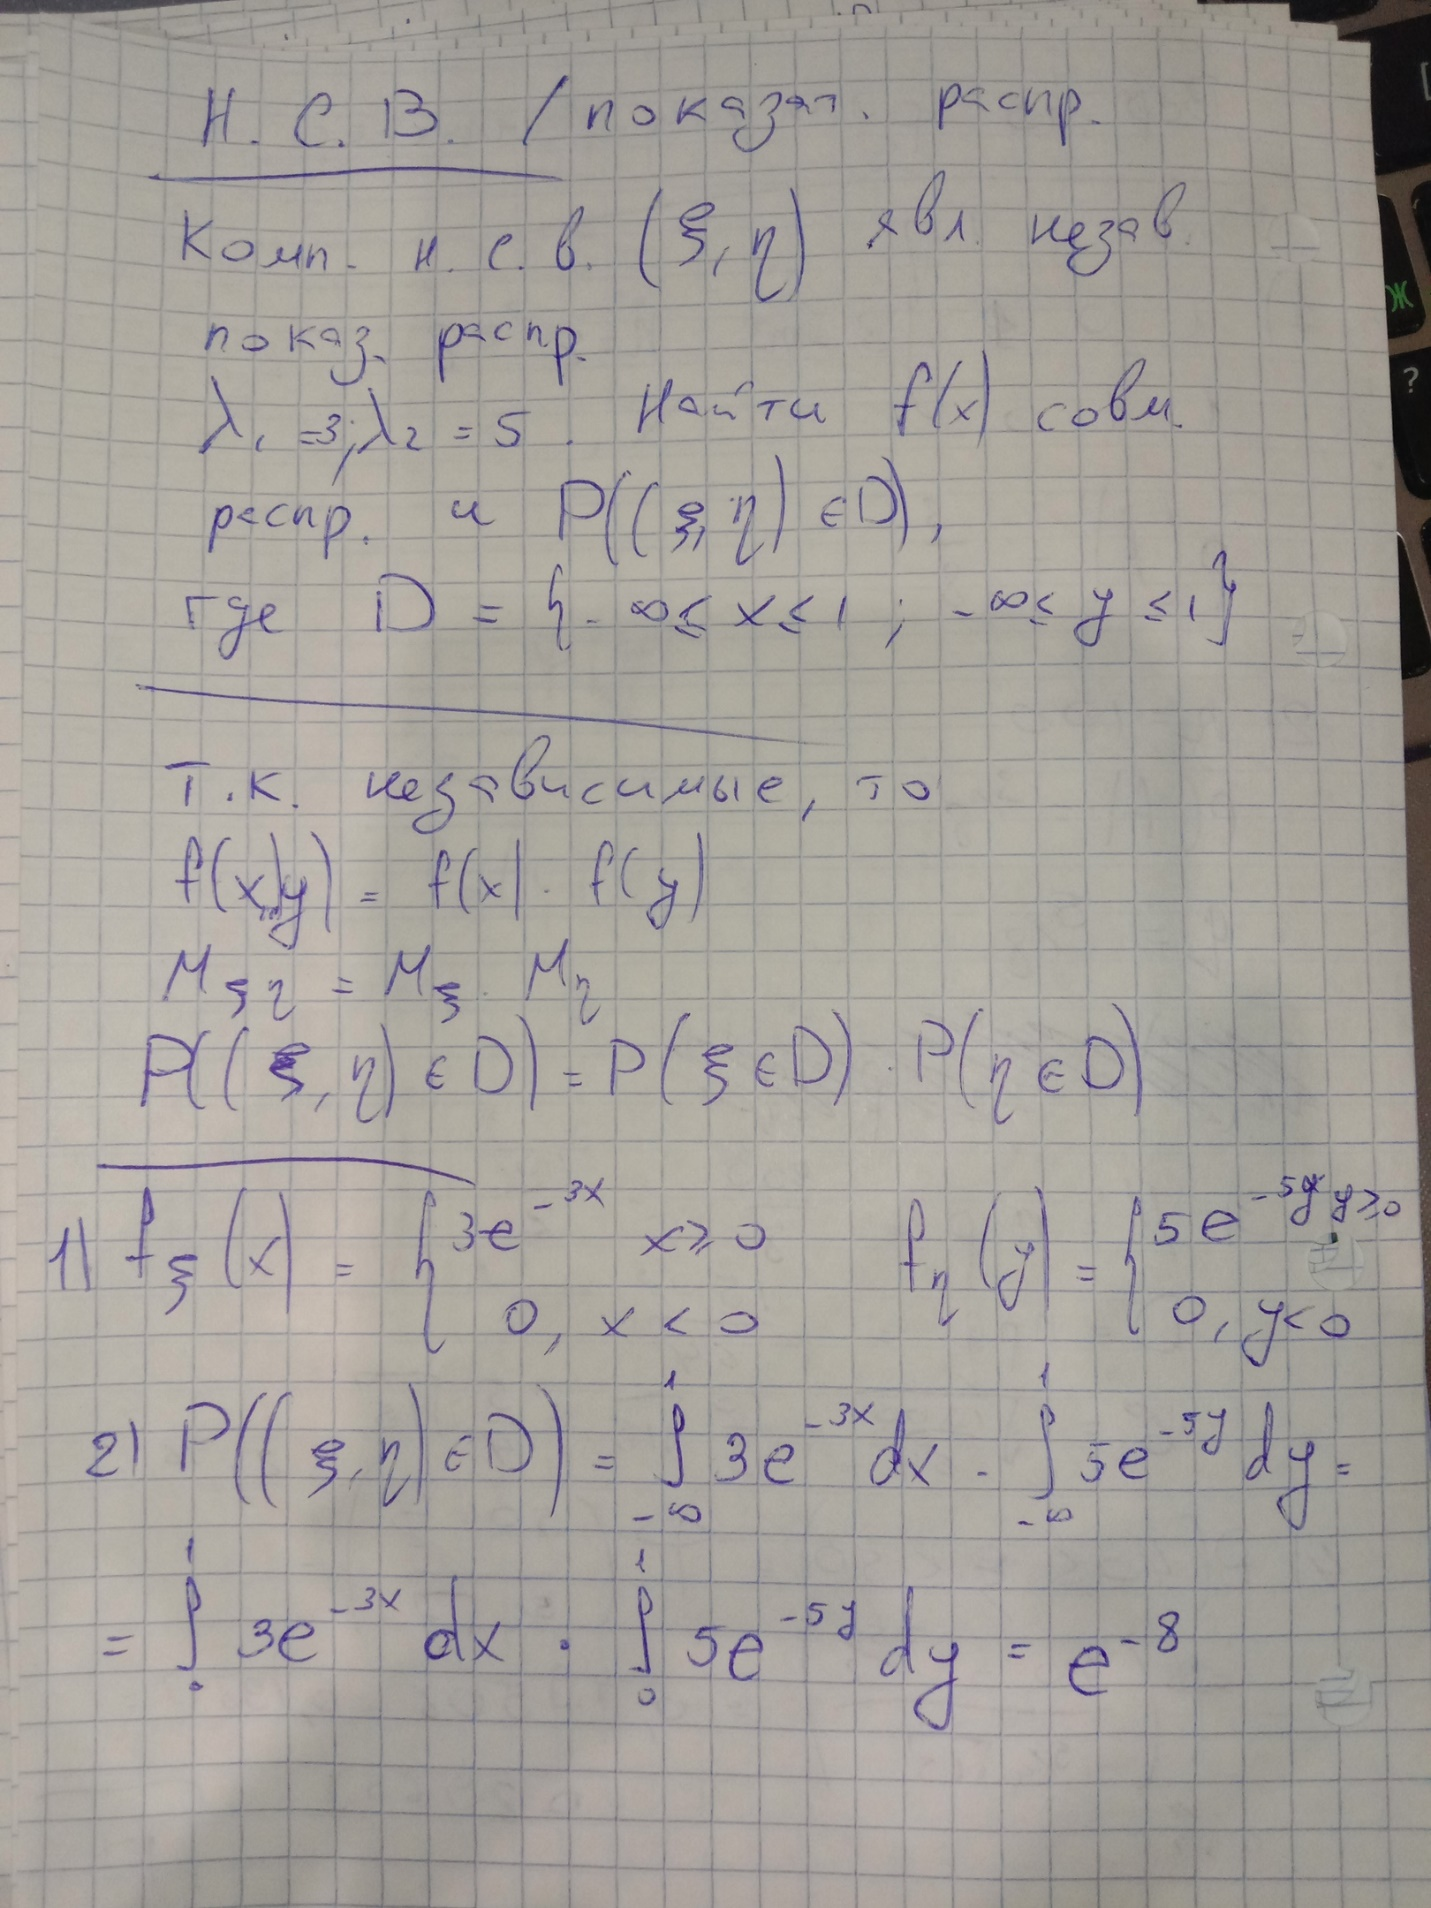 Н. С. В. / показат. распр.
Комп. н. с. в. (ξ, η) явл. незав.
показ. распр.
λ₁ =3; λ₂ = 5 . Найти f(x) совм.
распр. и P((ξ, η) ∈ D),
где D = {-∞ ≤ x ≤ 1 ; -∞ ≤ y ≤ 1}
Т.к. независимые, то
f(x,y) = f(x) · f(y)
Mξη = Mξ · Mη
P((ξ, η) ∈ D) = P(ξ ∈ D) · P(η ∈ D)
1) fξ(x) = { 3e^{-3x} x ≥ 0 0, x < 0 fη(y) = { 5e^{-5y} y ≥ 0 0, y < 0
2) P((ξ, η) ∈ D) = ∫_{-∞}^{1} 3e^{-3x} dx · ∫_{-∞}^{1} 5e^{-5y} dy =
= ∫_{0}^{1} 3e^{-3x} dx · ∫_{0}^{1} 5e^{-5y} dy = e^{-8}
Ж
?
[